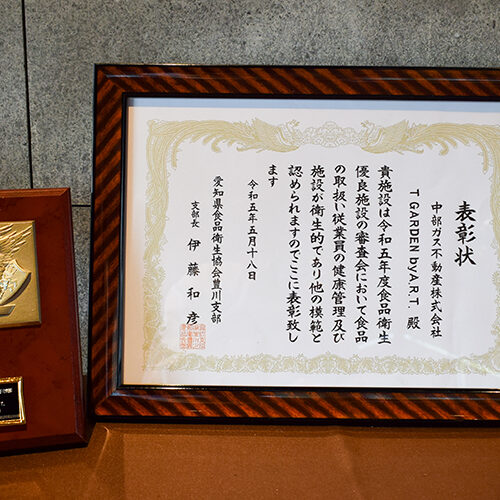 表彰状
中部ガス不動産株式会社
T GARDEN by A.R.T. 殿
貴施設は令和五年度食品衛生
優良施設の審査会において食品
の取扱い従業員の健康管理及び
施設が衛生的であり他の模範と
認められますのでここに表彰致し
ます
令和五年五月十八日
愛知県食品衛生協会豊川支部
支部長 伊藤和彦